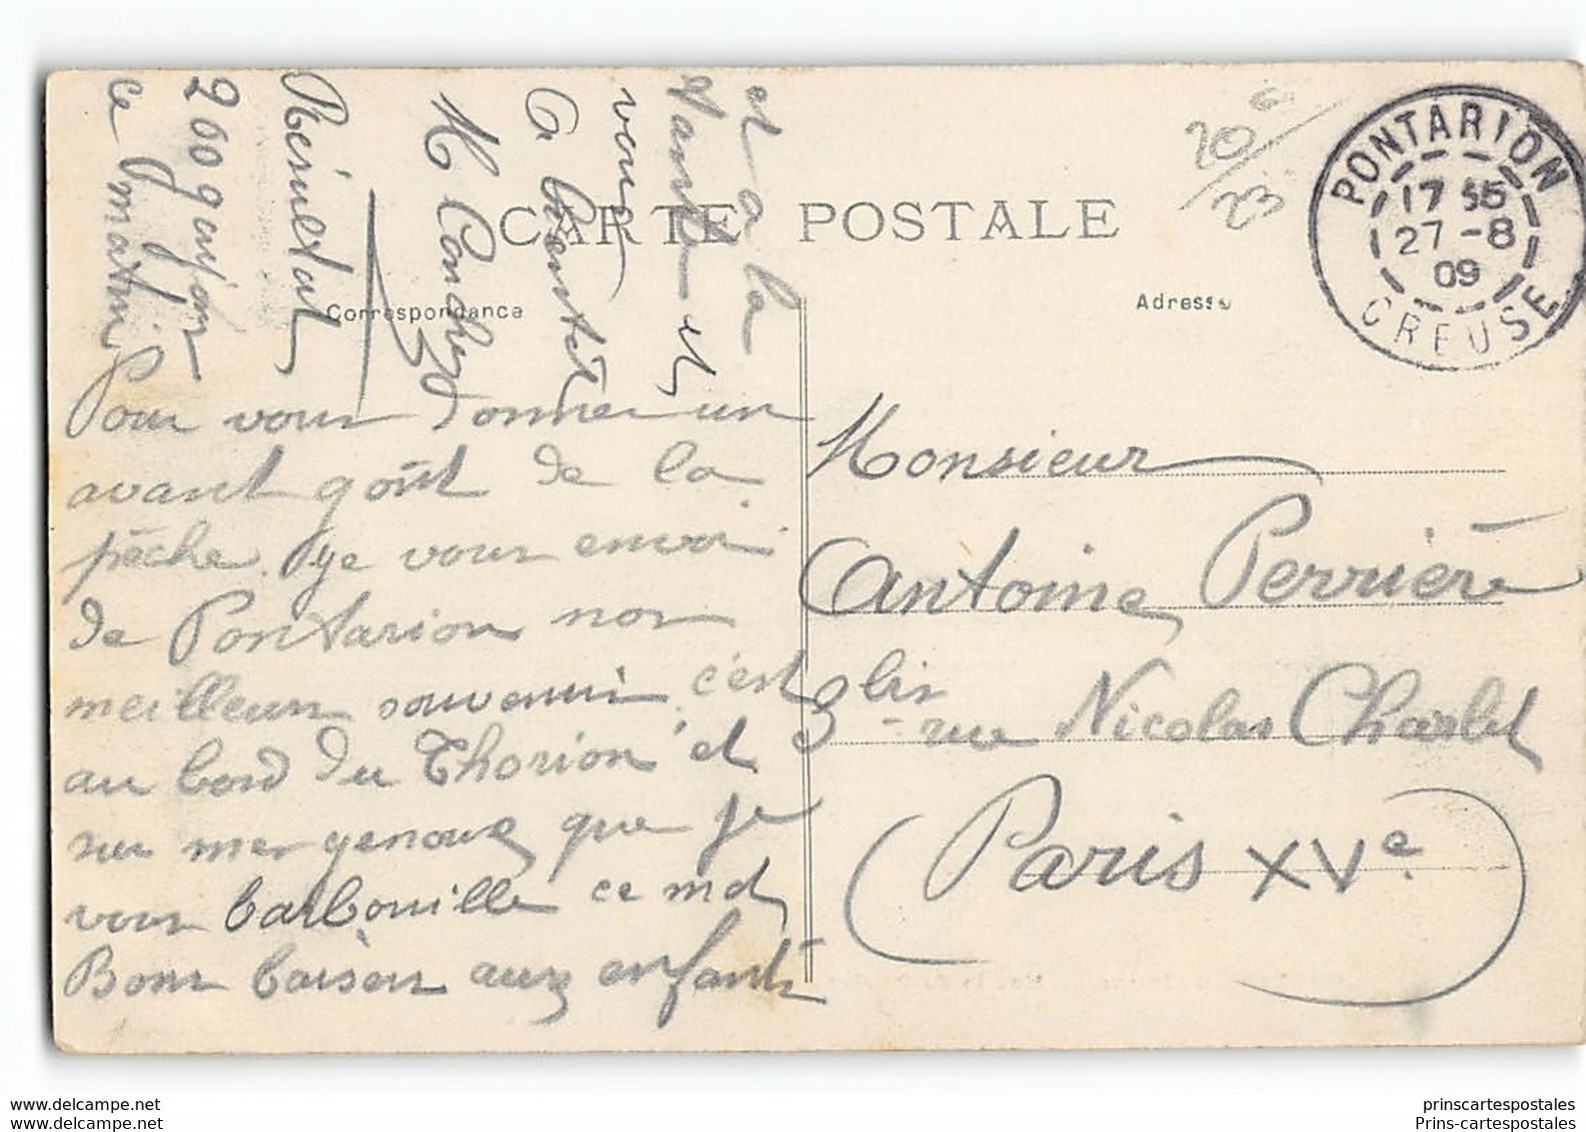 CARTE POSTALE
Correspondance
Adresse
PONTARION
17 55
27 - 8
09
CREUSE
20 c
23
Pour vous donner un
avant goût de la
pêche. je vous envoi
de Pontarion nos
meilleurs souvenirs c'est
au bord du Thorion et
sur mes genoux que je
vous barbouille ce mot
Bons baisers aux enfants
et a la
tante et
vous
M Conchez
Résultat
200 goujons
ce matin
Monsieur
Antoine Perrière
9 bis rue Nicolas Charlet
Paris XVe
www.delcampe.net
Prins-cartespostales
prinscartespostales
Prins-cartespostales.com